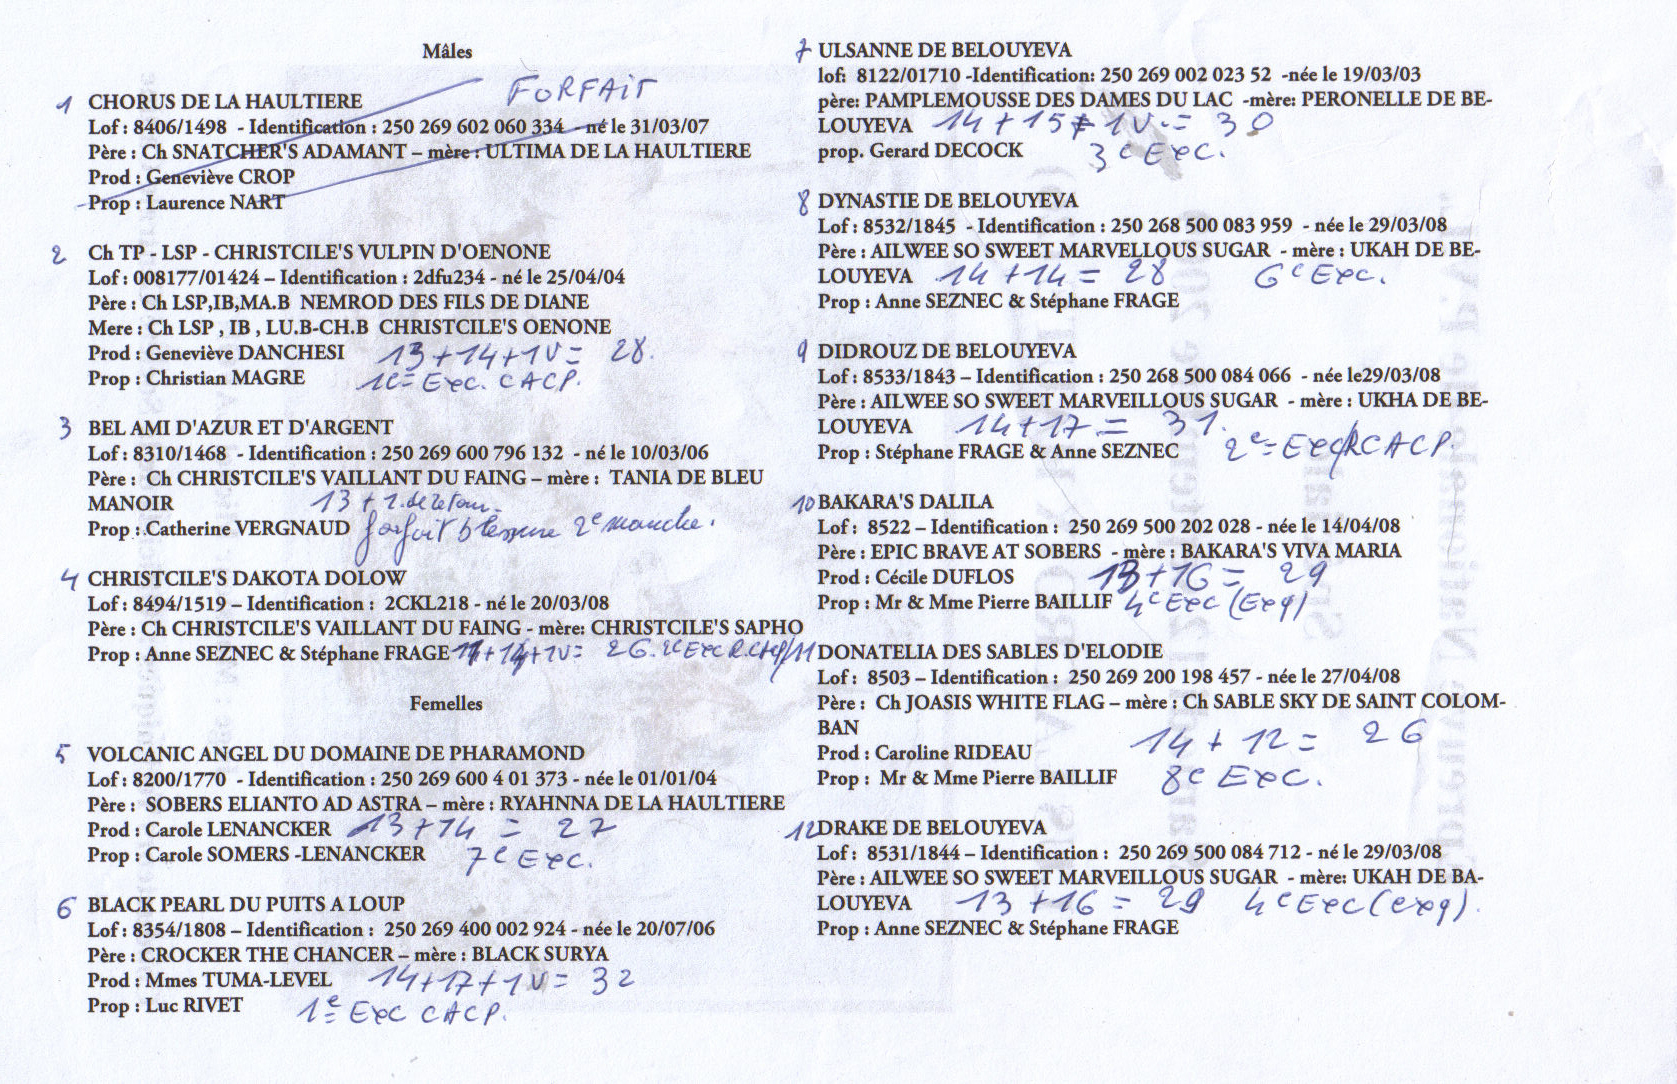 Mâles
1 CHORUS DE LA HAULTIERE FORFAIT
Lof : 8406/1498 - Identification : 250 269 602 060 334 - né le 31/03/07
Père : Ch SNATCHER'S ADAMANT – mère : ULTIMA DE LA HAULTIERE
Prod : Geneviève CROP
Prop : Laurence NART
2 Ch TP - LSP - CHRISTCILE'S VULPIN D'OENONE
Lof : 008177/01424 – Identification : 2dfu234 - né le 25/04/04
Père : Ch LSP,IB,MA.B NEMROD DES FILS DE DIANE
Mere : Ch LSP , IB , LU.B-CH.B CHRISTCILE'S OENONE
Prod : Geneviève DANCHESI 13+14+1V= 28.
Prop : Christian MAGRE 1e= Exc. CACP.
3 BEL AMI D'AZUR ET D'ARGENT
Lof : 8310/1468 - Identification : 250 269 600 796 132 - né le 10/03/06
Père : Ch CHRISTCILE'S VAILLANT DU FAING – mère : TANIA DE BLEU
MANOIR 13 +
Prop : Catherine VERGNAUD forfait blessure 2e manche.
4 CHRISTCILE'S DAKOTA DOLOW
Lof : 8494/1519 – Identification : 2CKL218 - né le 20/03/08
Père : Ch CHRISTCILE'S VAILLANT DU FAING - mère: CHRISTCILE'S SAPHO
Prop : Anne SEZNEC & Stéphane FRAGE +1V= 26. 2e Exc R.CACP
Femelles
5 VOLCANIC ANGEL DU DOMAINE DE PHARAMOND
Lof : 8200/1770 - Identification : 250 269 600 4 01 373 - née le 01/01/04
Père : SOBERS ELIANTO AD ASTRA – mère : RYAHNNA DE LA HAULTIERE
Prod : Carole LENANCKER 13+14 = 27
Prop : Carole SOMERS -LENANCKER 7e Exc.
6 BLACK PEARL DU PUITS A LOUP
Lof : 8354/1808 – Identification : 250 269 400 002 924 - née le 20/07/06
Père : CROCKER THE CHANCER – mère : BLACK SURYA
Prod : Mmes TUMA-LEVEL 14+17+1V= 32
Prop : Luc RIVET 1e= Exc CACP.
7 ULSANNE DE BELOUYEVA
lof: 8122/01710 -Identification: 250 269 002 023 52 -née le 19/03/03
père: PAMPLEMOUSSE DES DAMES DU LAC -mère: PERONELLE DE BE-
LOUYEVA 14+15+1V.= 30
prop. Gerard DECOCK 3e Exc.
8 DYNASTIE DE BELOUYEVA
Lof : 8532/1845 - Identification : 250 268 500 083 959 - née le 29/03/08
Père : AILWEE SO SWEET MARVELLOUS SUGAR - mère : UKAH DE BE-
LOUYEVA 14+14= 28 6e Exc.
Prop : Anne SEZNEC & Stéphane FRAGE
9 DIDROUZ DE BELOUYEVA
Lof : 8533/1843 – Identification : 250 268 500 084 066 - née le29/03/08
Père : AILWEE SO SWEET MARVEILLOUS SUGAR - mère : UKHA DE BE-
LOUYEVA 14+17= 31.
Prop : Stéphane FRAGE & Anne SEZNEC 2e= Exc RCACP.
10 BAKARA'S DALILA
Lof : 8522 – Identification : 250 269 500 202 028 - née le 14/04/08
Père : EPIC BRAVE AT SOBERS - mère : BAKARA'S VIVA MARIA
Prod : Cécile DUFLOS 13+16= 29
Prop : Mr & Mme Pierre BAILLIF 4e Exc (Exq)
11 DONATELIA DES SABLES D'ELODIE
Lof : 8503 – Identification : 250 269 200 198 457 - née le 27/04/08
Père : Ch JOASIS WHITE FLAG – mère : Ch SABLE SKY DE SAINT COLOM-
BAN
Prod : Caroline RIDEAU 14+12= 26
Prop : Mr & Mme Pierre BAILLIF 8e Exc.
12 DRAKE DE BELOUYEVA
Lof : 8531/1844 – Identification : 250 269 500 084 712 - né le 29/03/08
Père : AILWEE SO SWEET MARVEILLOUS SUGAR - mère: UKAH DE BA-
LOUYEVA 13+16= 29 4e Exc (exq).
Prop : Anne SEZNEC & Stéphane FRAGE